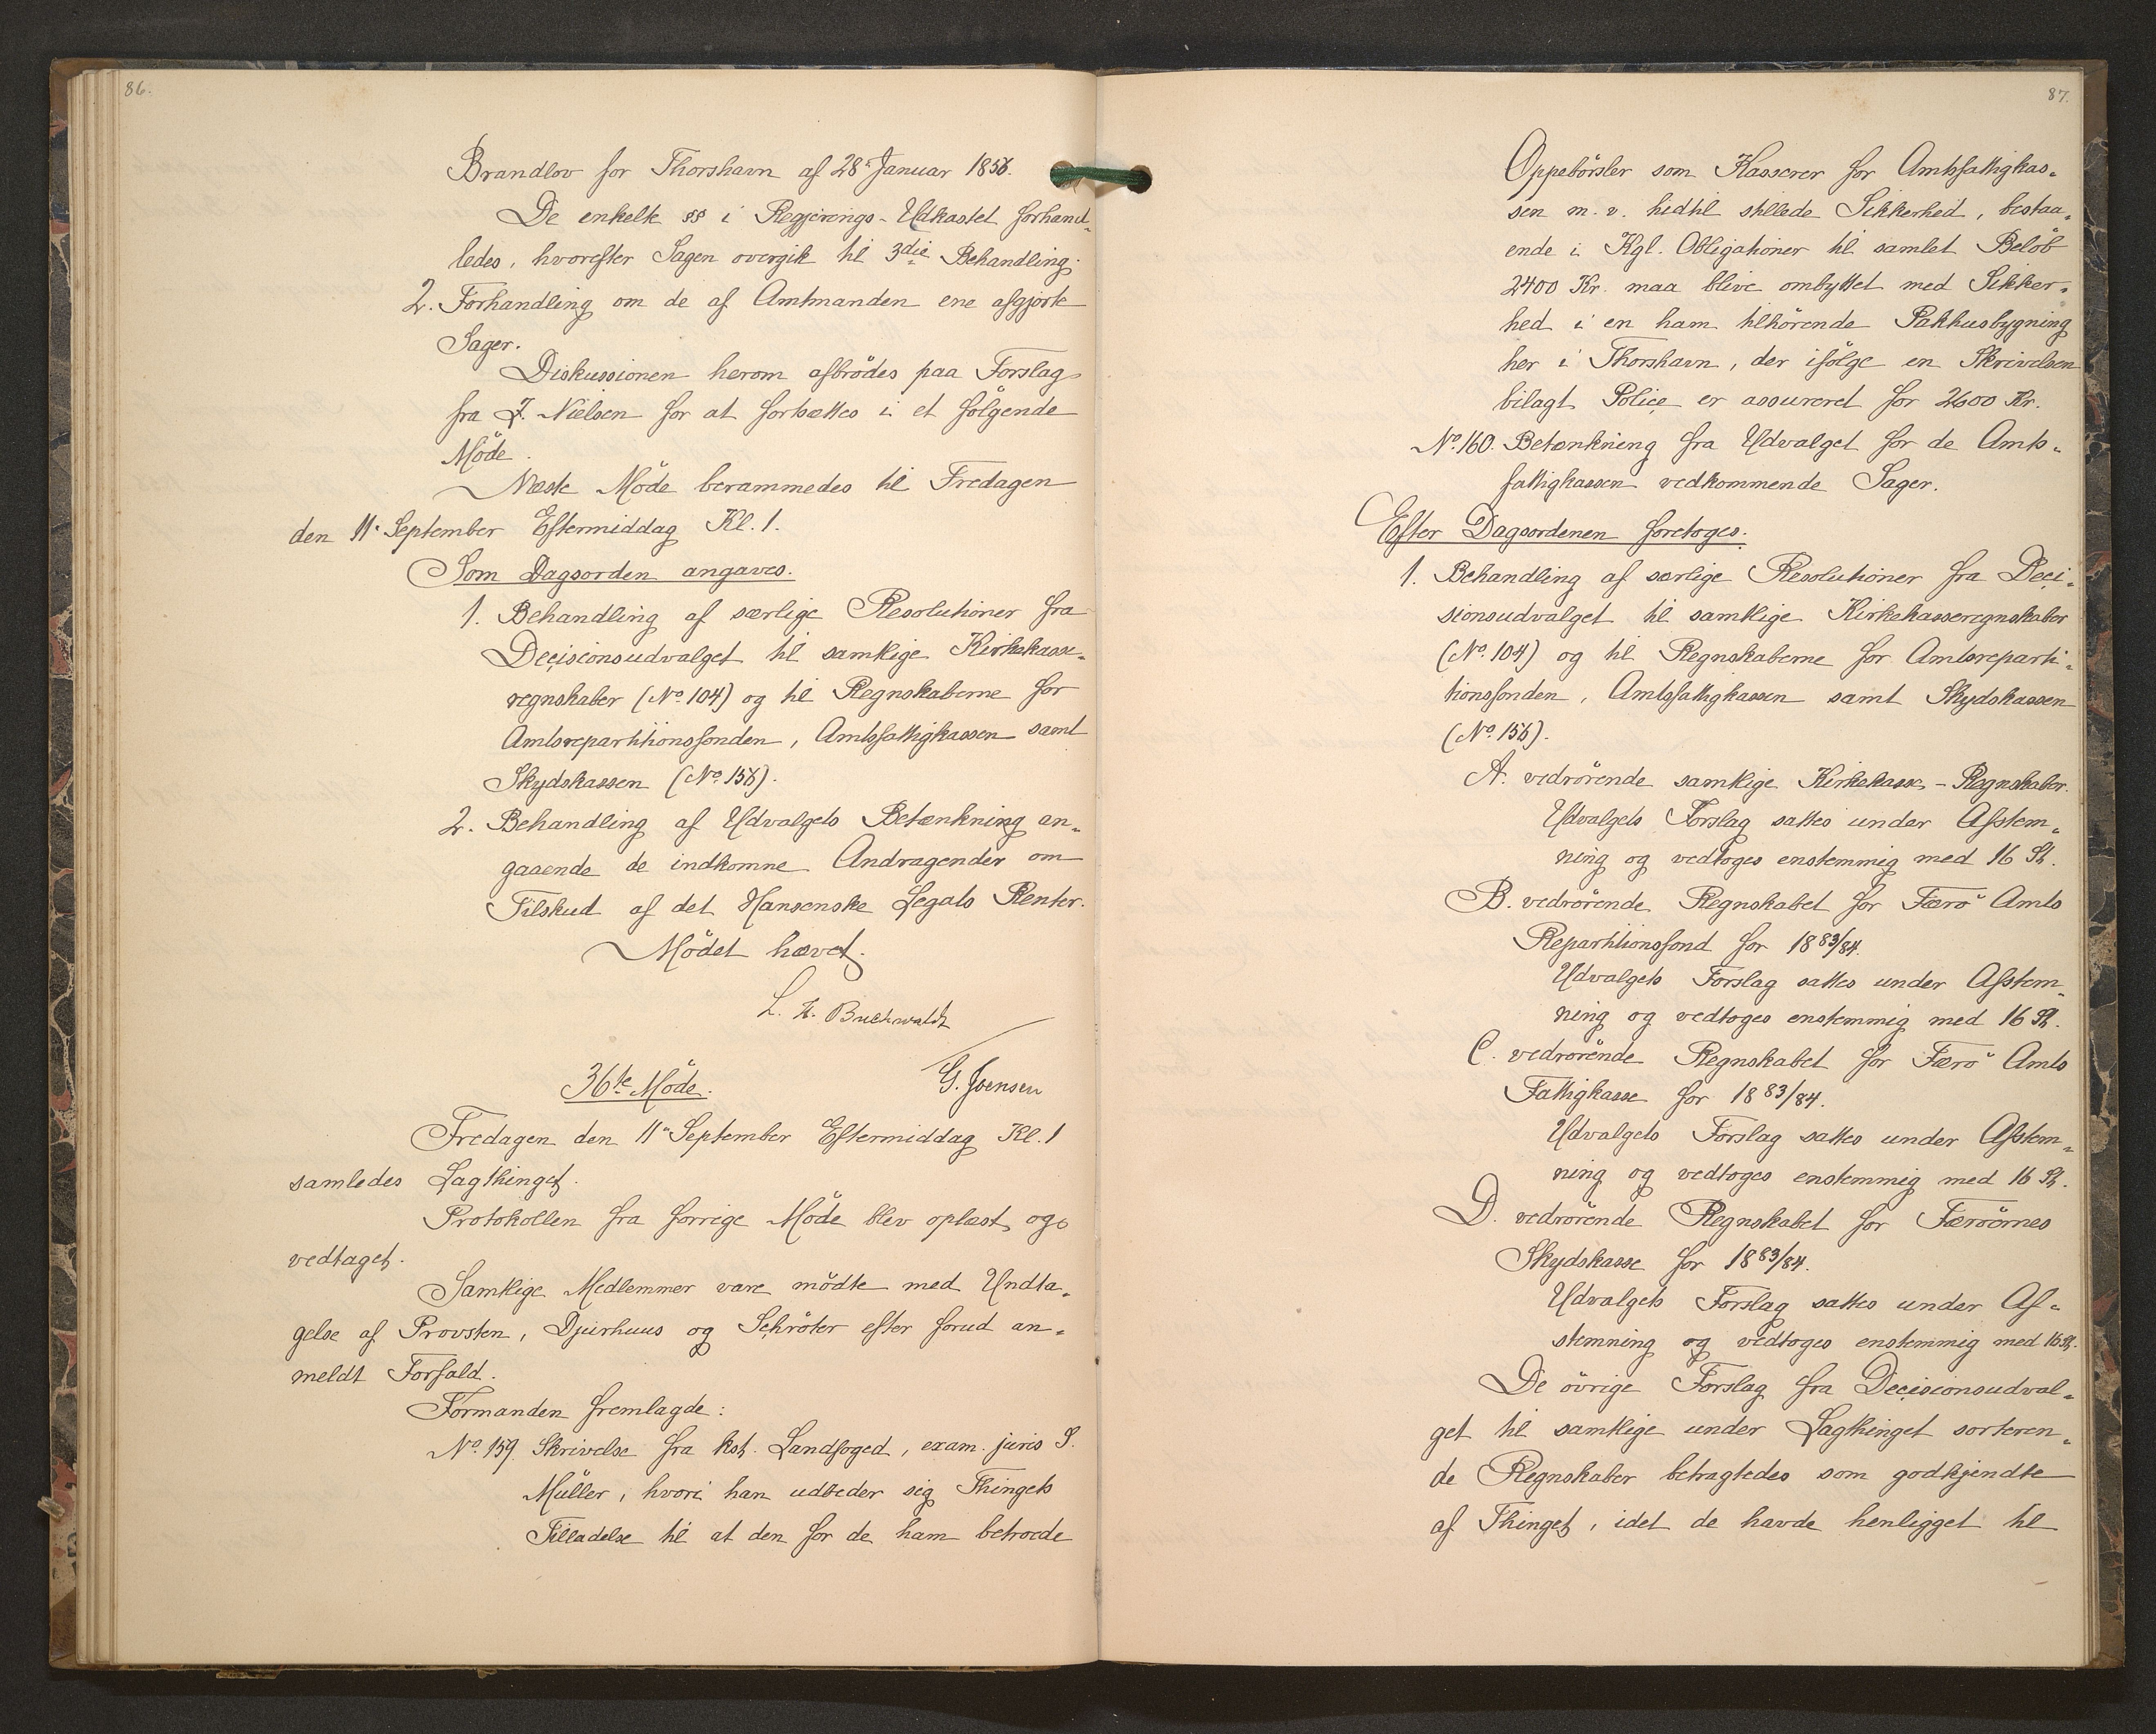 86.
Brandlov for Thorshavn af 28de Januar 1856.
De enkelte §§ i Regjerings-Udkastet forhand-
ledes, hvorefter Sagen overgik til 3die Behandling.
2. Forhandling om de af Amtmanden ene afgjorte
Sager.
Diskussionen herom afbrödes paa Forslag
fra J. Nielsen for at fortsættes i et fölgende
Möde.
Næste Möde berammedes til Fredagen
den 11te September Eftermiddag Kl. 1.
Som Dagsorden angaves.
1. Behandling af særlige Resolutioner fra
Decisionsudvalget til samtlige Kirkekasse-
regnskaber (No. 104) og til Regnskaberne for
Amtsrepartitionsfonden, Amtsfattigkassen samt
Skydskassen (No. 156).
2. Behandling af Udvalgets Betænkning an-
gaaende de indkomne Andragender om
Tilskud af det Hansenske Legats Renter.
Mödet hævet.
L. Buchwaldt
G. Joensen
36te Möde.
Fredagen den 11te September Eftermiddag Kl. 1
samledes Lagthinget.
Protokollen fra forrige Möde blev oplæst og
vedtaget.
Samtlige Medlemmer vare mödte med Undta-
gelse af Provsten, Djurhuus og Schröter efter forud an-
meldt Forfald.
Formanden fremlagde:
No. 159. Skrivelse fra kst. Landfoged, exam. juris S.
Müller, hvori han udbeder sig Thingets
Tilladelse til at den for de ham betroede
87.
Oppebörsler som Kasserer for Amtsfattigkas-
sen m. v. hidtil stillede Sikkerhed, bestaa-
ende i Kgl. Obligationer til samlet Belöb
2400 Kr. maa blive ombyttet med Sikker-
hed i en ham tilhörende Pakhusbygning
her i Thorshavn, der ifölge en Skrivelsen
bilagt Police er assureret for 2600 Kr.
No. 160. Betænkning fra Udvalget for de Amts-
fattigkassen vedkommende Sager.
Efter Dagsordenen foretoges.
1. Behandling af særlige Resolutioner fra Deci-
sionsudvalget til samtlige Kirkekasseregnskaber
(No. 104) og til Regnskaberne for Amtsreparti-
tionsfonden, Amtsfattigkassen samt Skydskassen
(No. 156).
A. vedrörende samtlige Kirkekasse-Regnskaber.
Udvalgets Forslag sattes under Afstem-
ning og vedtoges enstemmig med 16 St.
B. vedrörende Regnskabet for Færö Amts
Repartitionsfond for 1883/84.
Udvalgets Forslag sattes under Afstem-
ning og vedtoges enstemmig med 16 St.
C. vedrörende Regnskabet for Færö Amts
Fattigkasse for 1883/84.
Udvalgets Forslag sattes under Afstem-
ning og vedtoges enstemmig med 16 St.
D. vedrörende Regnskabet for Færöernes
Skydskasse for 1883/84.
Udvalgets Forslag sattes under Af-
stemning og vedtoges enstemmig med 16 St.
De övrige Forslag fra Decisionsudval-
get til samtlige under Lagthinget sorteren-
de Regnskaber betragtedes som godkjendte
af Thinget, idet de havde henligget til